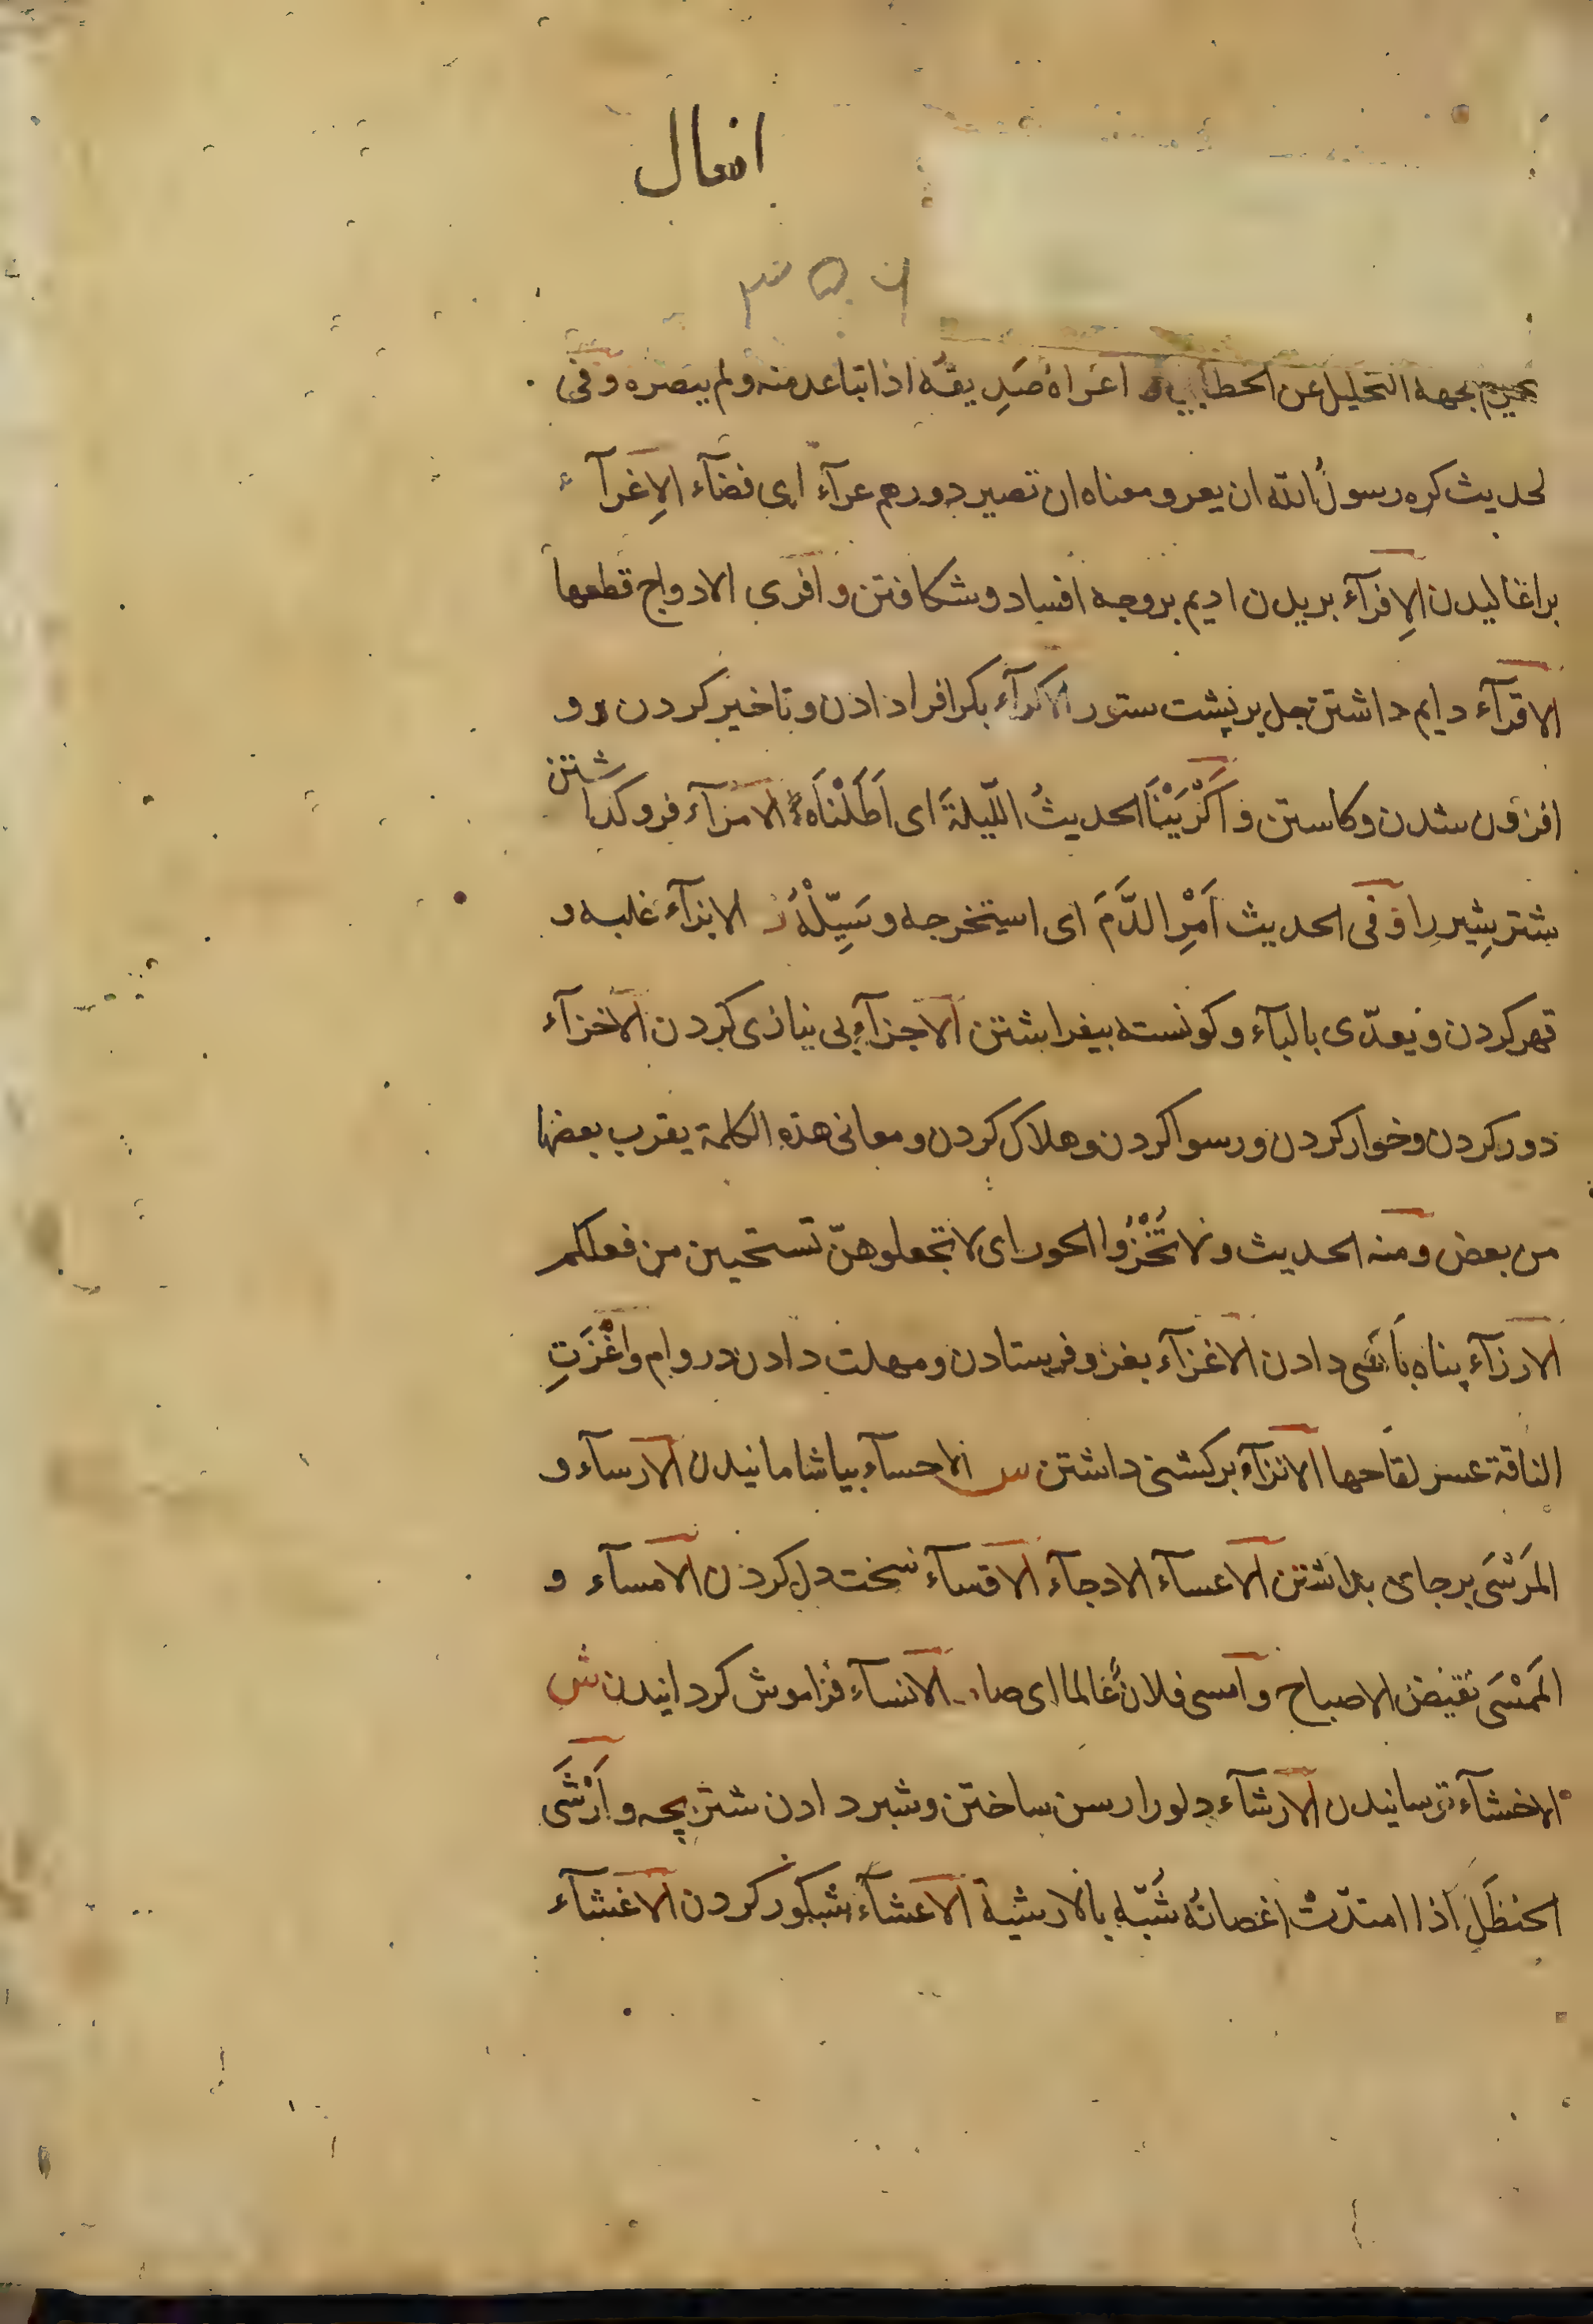 افعال
بجهة التخليل عن الخطابي اعراهُ صَدِيقُه اذا تباعد منه ولم ينصره وفی
لحديث كره رسولُ الله ان يعرو معناه ان تصير دورهم عرآء ای فضآء الاِغرآء
براغاليدن الاِفرآء بريدن اديم بر وجه افساد و شكافتن و افری الاوداج قطعها
الاقرآء دايم داشتن جل بر پشت ستور الاكرآء بكرا فرا دادن و تاخير كردن و
افزون شدن و كاستن و اَكْرَيْنَا الحديثَ اللّيلةَ ای اَطَلْنَاهُ الامرآء فرو كذاشتن
شتر شير را و فی الحديث اَمْرِ الدَّمَ ای استخرجه و سَيِّلْهُ ز الابزآء غلبه و
قهر كردن و يعدّی بالبآء و كونسته بيفراشتن الاجزآء بی نيازی كردن الاخزآء
دور كردن و خوار كردن و رسوا كردن و هلاك كردن و معانی هذه الكلمة يقرب بعضها
من بعض و منه الحديث و لا تُخْزُوا الحور ای لا تجعلوهنّ تستحيين من فعلكم
الارزآء پناه با كسی دادن الاغزآء بغزو فرستادن و مهلت دادن در وام و اَغْزَتِ
الناقة عسر لقاحها الانزآء بر كشنی داشتن س الاحسآء بياشامانيدن الارسآء و
المَرْسَی بر جای بداشتن الاعسآء الادجآء الاقسآء سخت دل كردن الامسآء و
المَمْسَی نقيض الاصباح و امسی فلانٌ عالما ای صار الانسآء فراموش كردانيدن ش
الاخشآء ترسانيدن الارشآء دلو را رسن ساختن و شير دادن شتر بچه و اَرْشَی
الحنظَلُ اذا امتدّتْ اغصانُه شُبّه بالارشية الاعشآء شبكور كردن الاغشآء